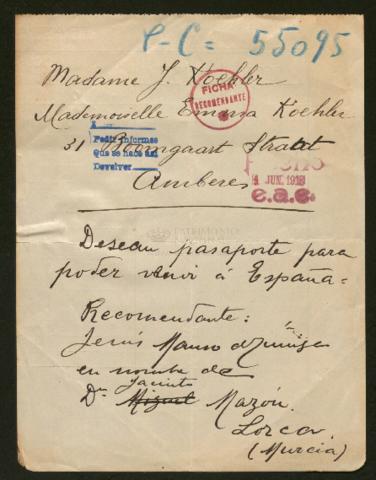 P-C = 55095
Madame J. Koehler
FICHA
RECOMENDANTE
Mademoiselle Emma Koehler
A
Pedir informes
Que se hace así
Devolver
31 Boomgaart Straat
Amberes
JUN. 1918
e.a.c.
Desean pasaporte para
poder venir á España =
PATRIMONIO
Recomendante:
Jesús
en nombre de
Jacinto
Dn Miguel Mazón.
Lorca.
(Murcia)